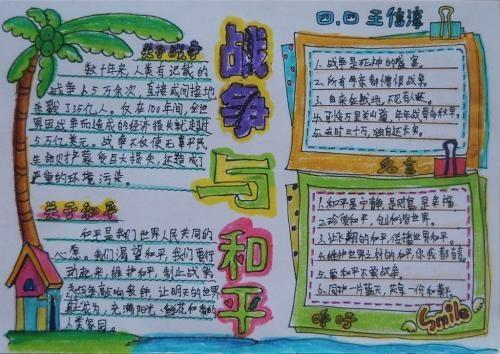 战争与和平
四.四 王信淳
关于战争
数千年来,人类有记载的
战争人5万余次,直接或间接地
丧
35亿人。仅在100年间,全世
界因战争而造成的经济损失就超过
5万亿美元。战争不仅使无辜平民
生命财产蒙受巨大损失,还造成了
严重的环境污染。
关于和平
和平是我们世界人民共同的
心愿。我们渴望和平,我们要行
动起来,维护和平,制止战争。
让明天的世界
充满阳光、鲜花和
人类家园。
1.战争是死神的盛宴。
2.所有母亲都憎恨战争。
3.自来征战地,不见有人
5.去时三十万,独自还长安。
名言
1.和平是宁静,是财富,是幸福。
2.珍爱和平,创和谐世界。
3.让飞翔的和平,传播世界和平。
4.维护世界主村的和平,你我都有责。
5.要和平不要战争。
6.同护一片蓝天,共享一份和平。
呼吁
Smile